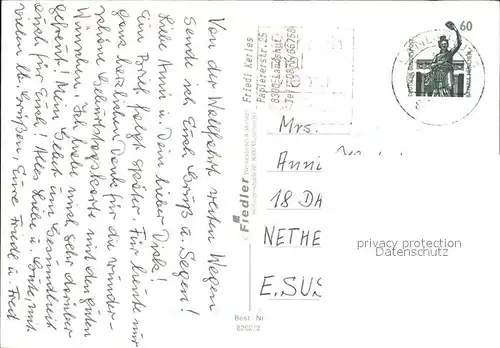 Von der Wallfahrt vielen Wegen
Sende ich Euch Grüße u. Segen!
Liebe Anni u. Dein lieber Dick!
Ein Brief folgt später. Für heute nur
ganz herzlichen Dank für die wunder-
schöne Geburtstagskarte mit den guten
Wünschen. Ich habe mich sehr darüber
gefreut! Mein Gebet um Gesundheit
auch für Euch! Alles Liebe u. Gute, mit
vielen lb. Grüßen, Eure Friedl u. Fred
Friedl Kerles
Papiererstr. 25
8300 Landshut
Fiedler
Best. Nr.
8262/2
60
Mrs.
Anni
18 DA
NETHE
E. SUS
privacy protection
Datenschutz